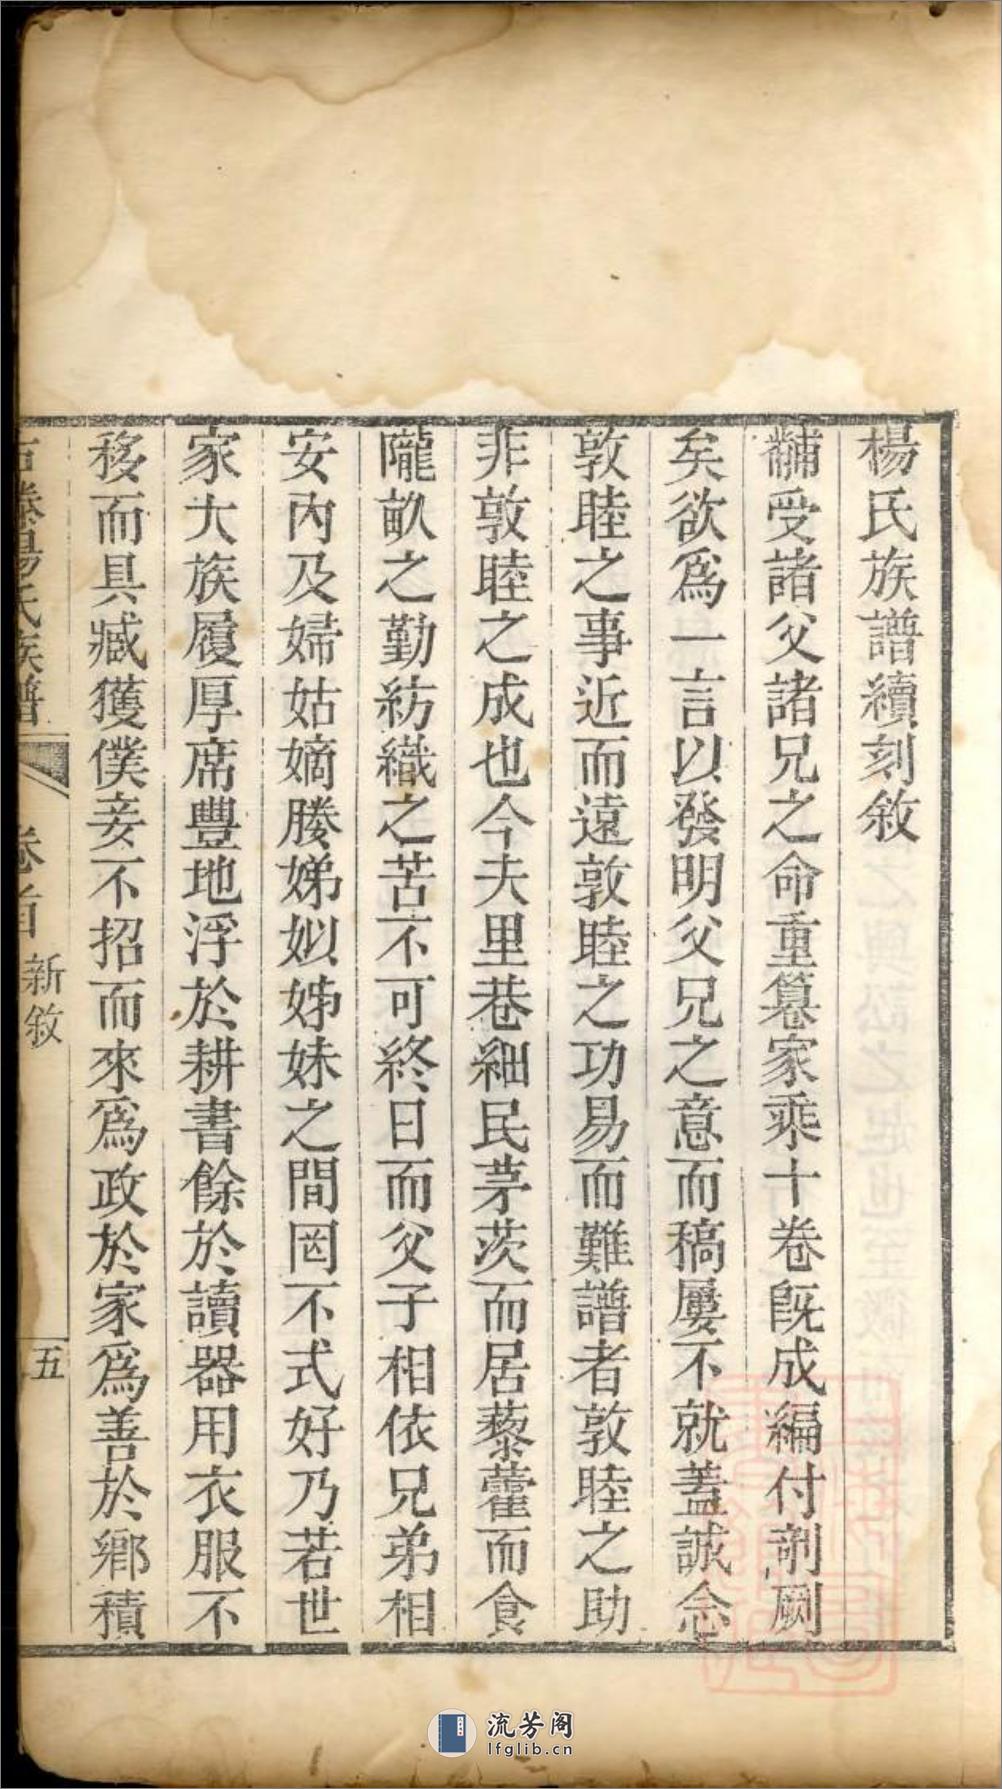 楊氏族譜續刻敘
黼受諸父諸兄之命重纂家乘十卷旣成編付剞劂
矣欲爲一言以發明父兄之意而稿屢不就蓋誠念
敦睦之事近而遠敦睦之功易而難譜者敦睦之助
非敦睦之成也今夫里巷細民茅茨而居藜藿而食
隴畝之勤紡織之苦不可終日而父子相依兄弟相
安內及婦姑嫡媵娣姒姊妹之間罔不式好乃若世
家大族履厚席豐地浮於耕書餘於讀器用衣服不
移而具臧獲僕妾不招而來爲政於家爲善於鄉積
楊氏族譜 卷首 新敘 五
流芳阁
lfglib.cn